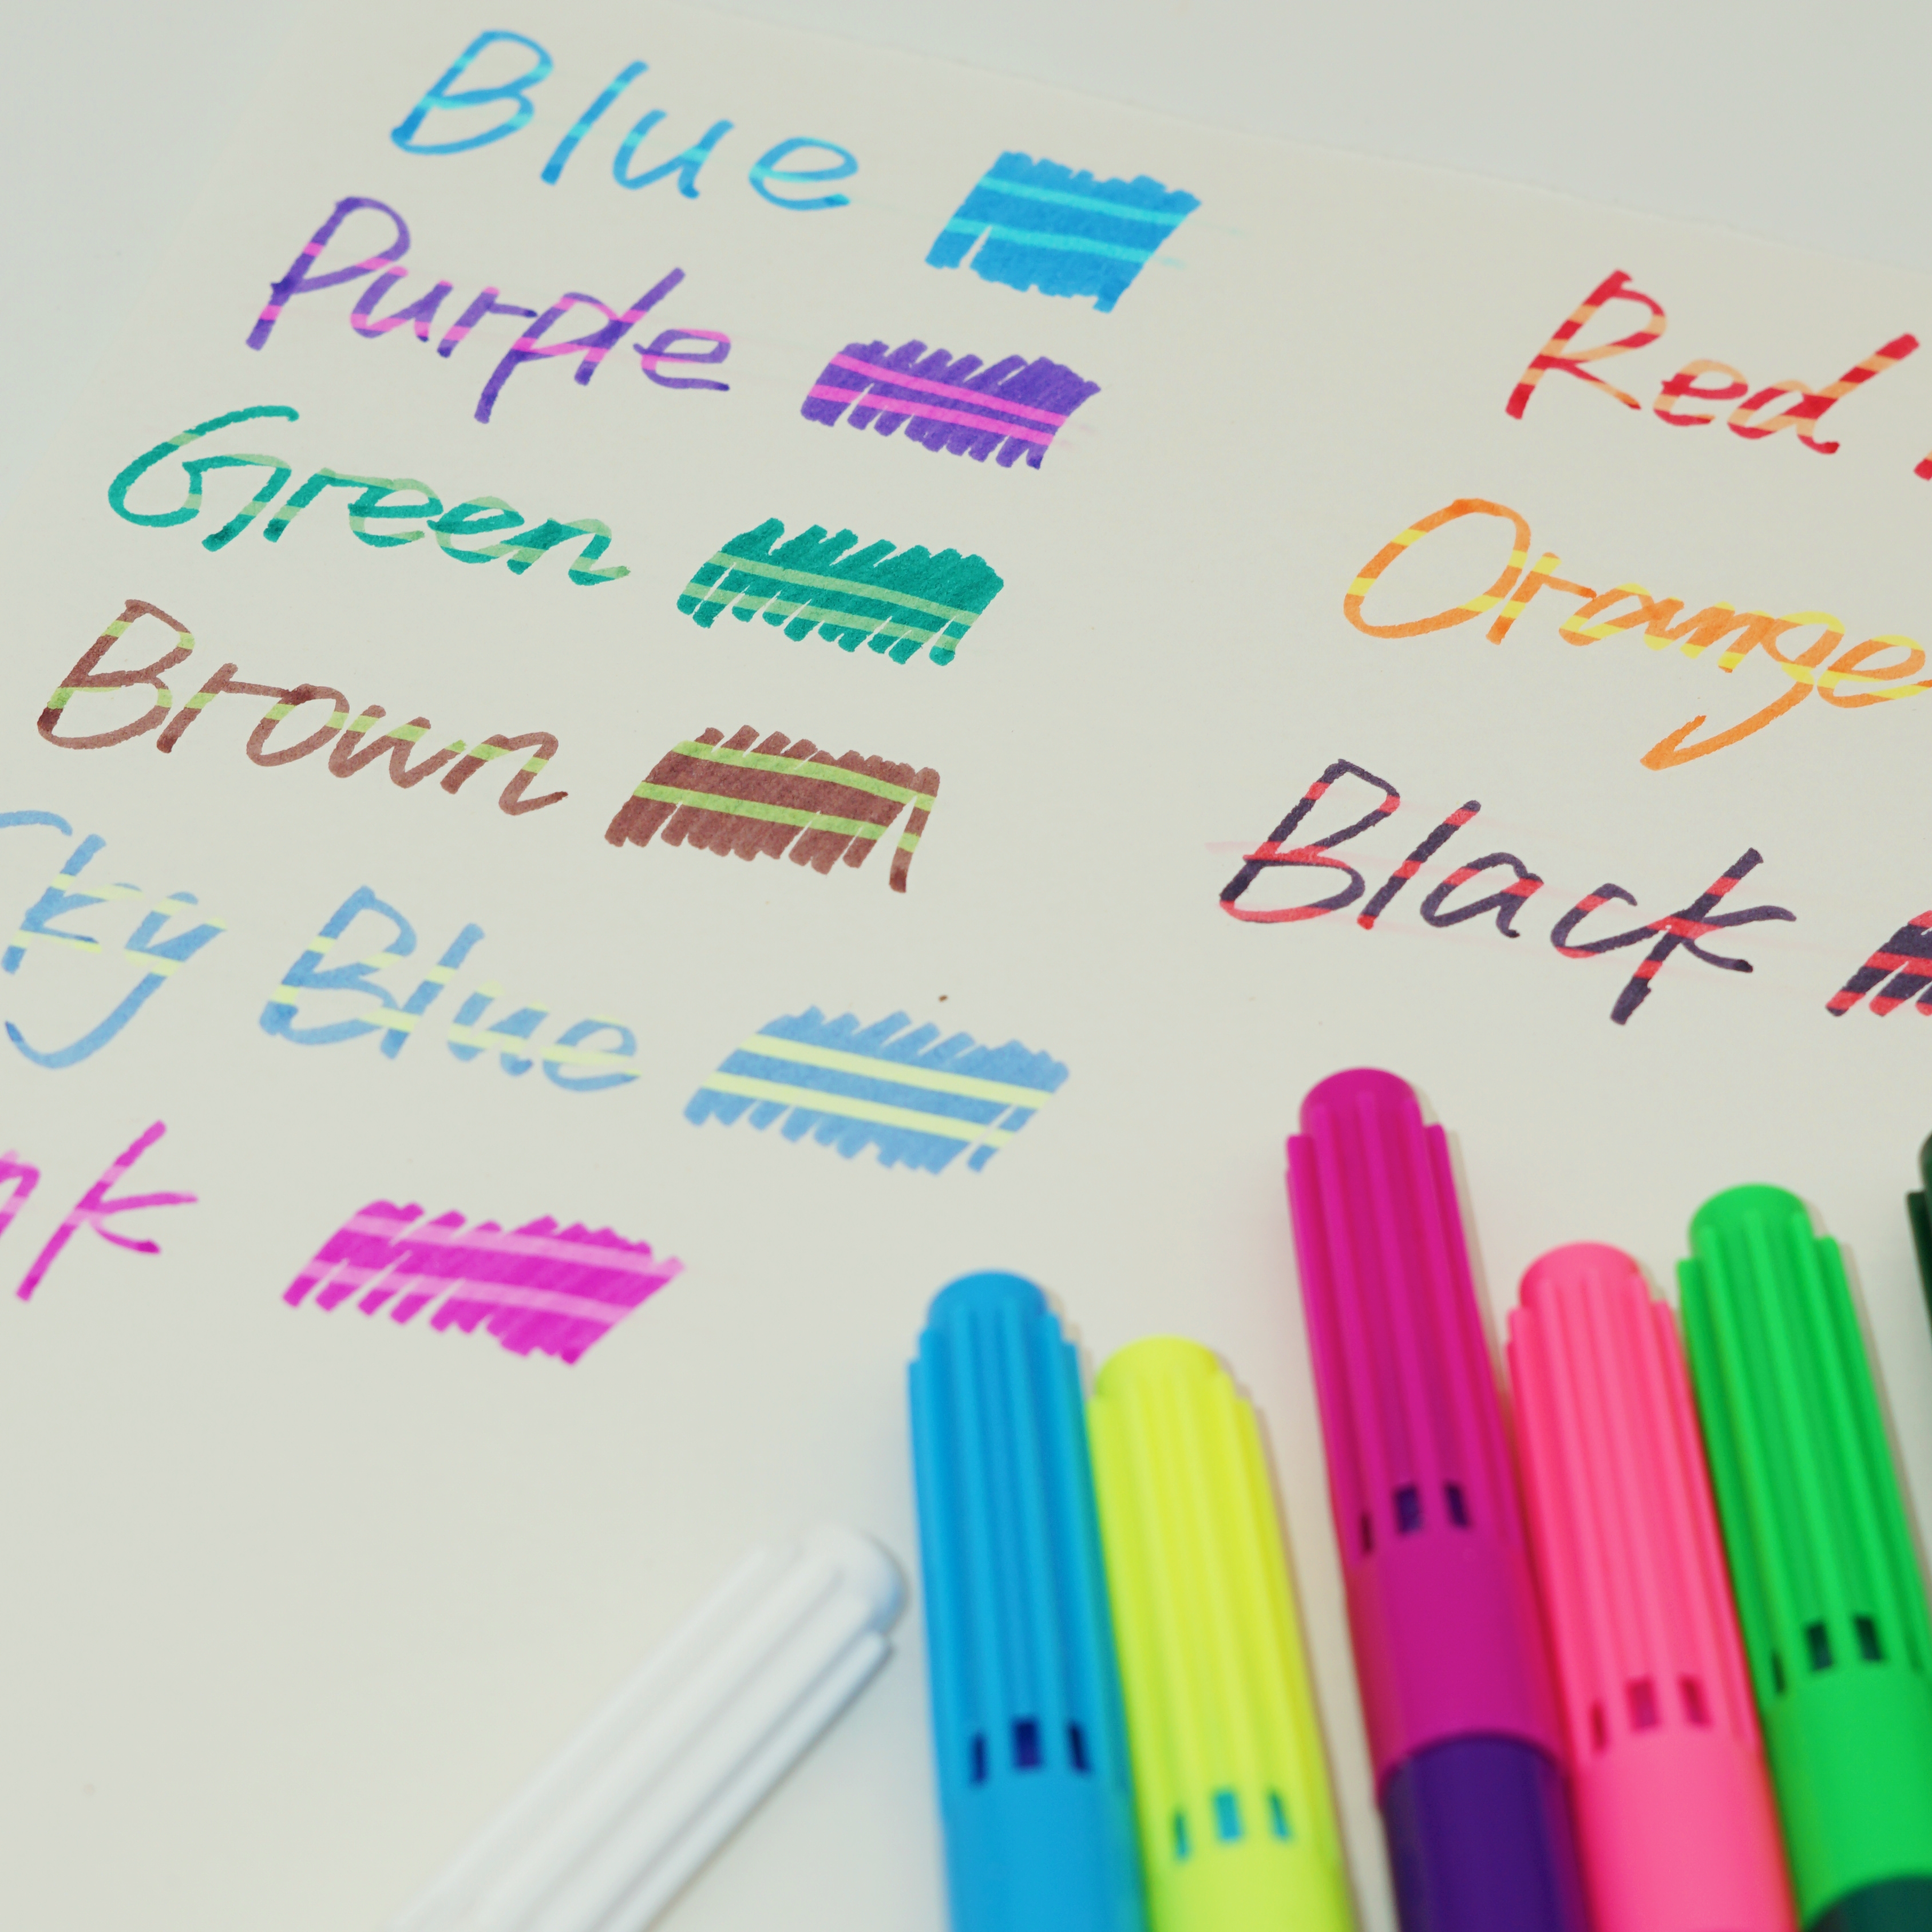 Blue
Purple
Green
Brown
Sky Blue
Red
Orange
Black